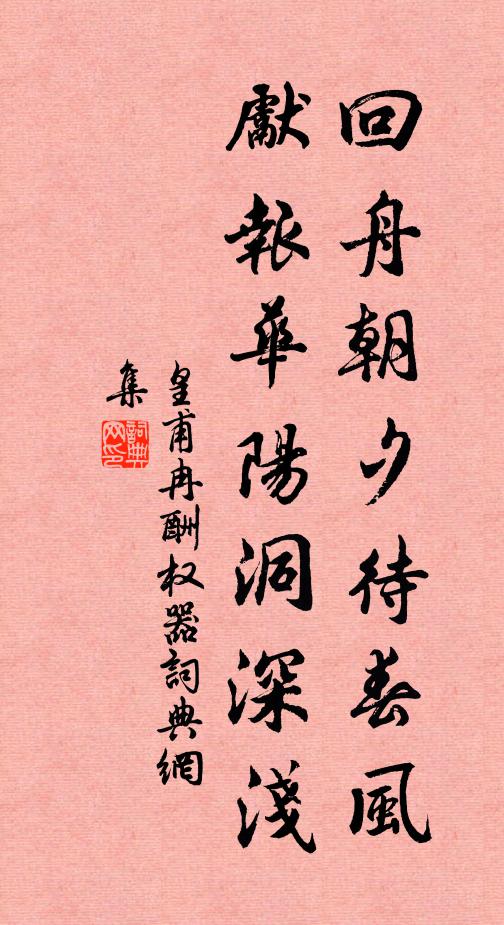 回舟朝夕待春風
獻報華陽洞深淺
皇甫冉酬权器詞典網
集
詞典
网印